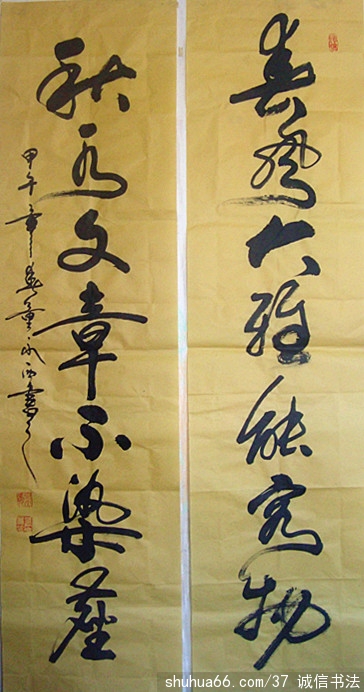 春風大雅能容物
秋水文章不染塵
甲午年春
shuhua66.com/37 诚信书法